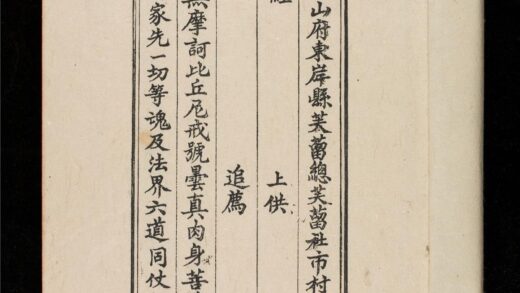 山府東岸縣芙蒥總芙蒥社市村
上供
追薦
無摩訶比丘尼戒號曇真肉身菩
家先一切等魂及法界六道同仗